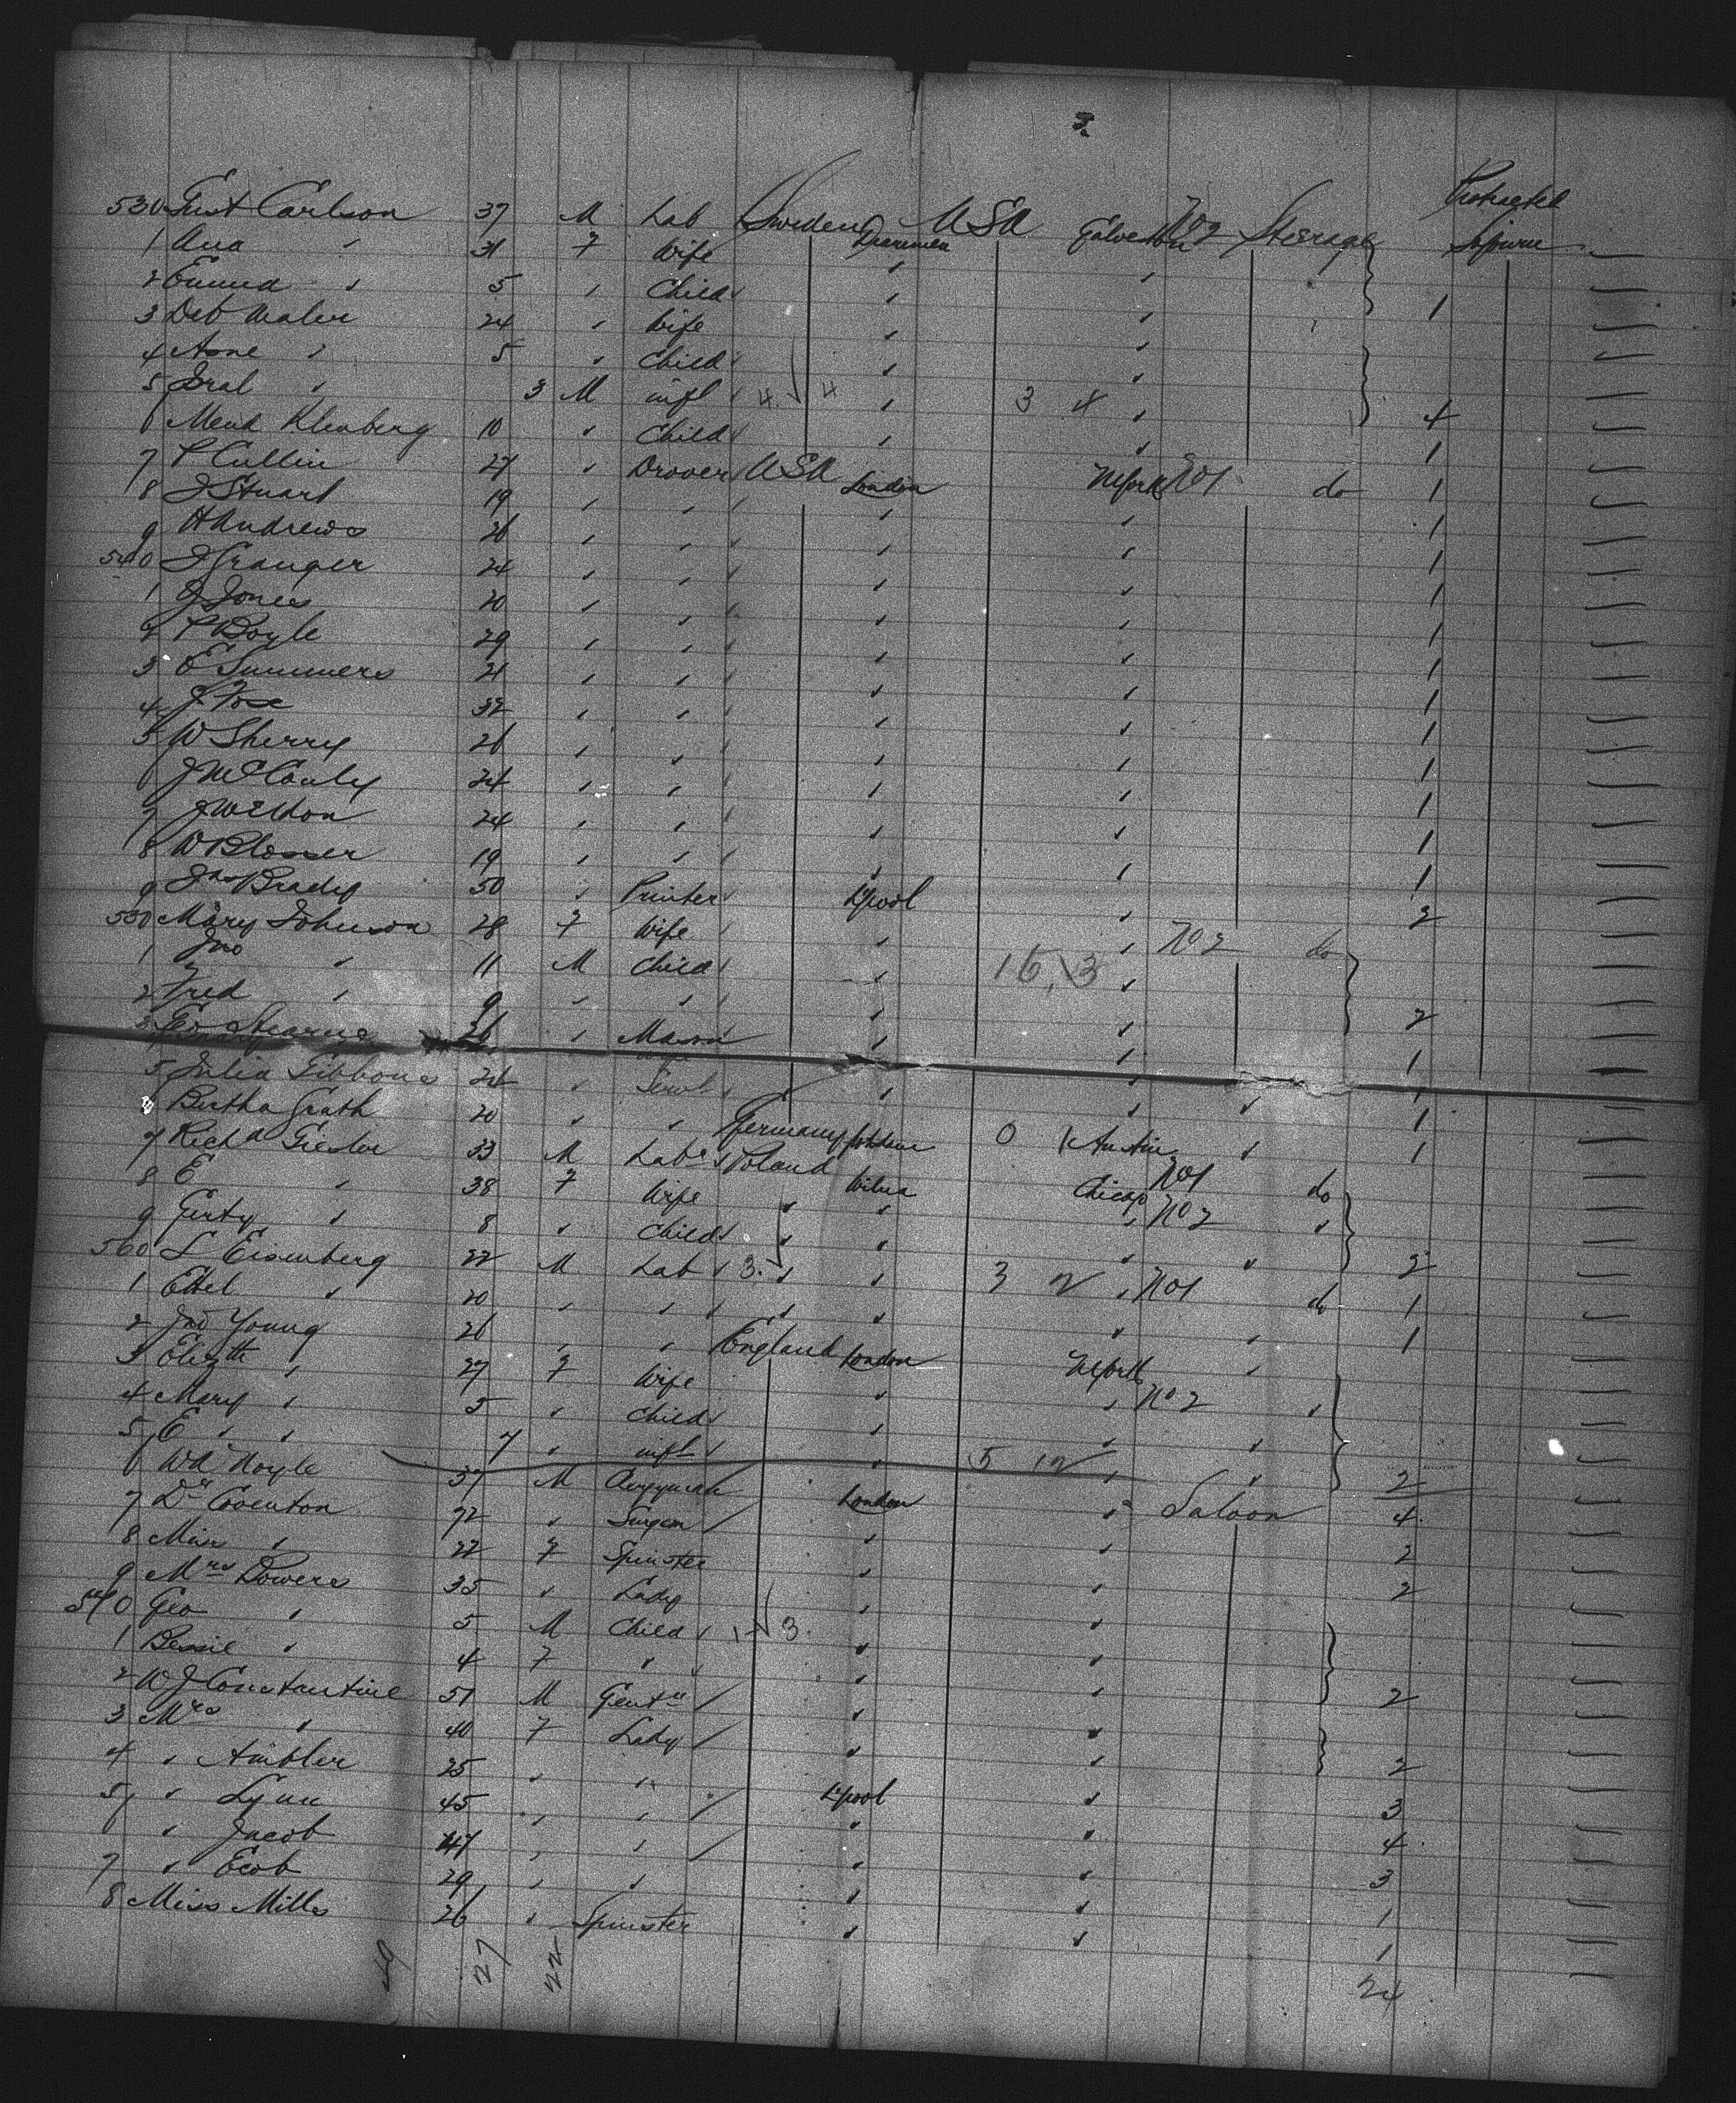 3.
Protracted
530 Gust Carlson 37 M Lab Sweden USA Galveston No 2 Steerage Sojourn
1 Ana " 31 F Wife
2 Emma " 5 " Child 1
3 Deb Maler 24 " Wife
4 Asne " 5 " Child
5 Sral " 3 M inft 4 4 3 4 4
6 Mend Klenberg 10 " Child 1
7 P Cullin 27 " Drover USA London N York No 1 do 1
8 J Stuart 19 " " 1
9 H Andrews 26 " " 1
540 J Granger 24 " " 1
1 J Jones 20 " " 1
2 P Boyle 29 " " 1
3 E Summers 21 " " 1
4 J Fox 32 " " 1
5 W Sherry 26 " " 1
6 J McCauly 24 " " 1
7 J Weldon 24 " " 1
8 W Blosser 19 " " 1
9 Jno Brady 50 " Printer L'pool 2
550 Mary Johnson 28 F Wife No 2 do
1 Jno " 11 M Child 15 13
2 Fred " 9 " " 2
3 Geo Stearns 26 " Mason 1
5 Julia Gibbons 24 " Servt 1
6 Bertha Grath 20 " " Germany 0 1 Austin 1
7 Richd Giesler 33 M Labr Poland Wilna Chicago No 1 do
8 E " 38 F Wife No 2
9 Gerty " 8 " Child 2
560 L Eisenberg 22 M Lab 3 3 2 No 1 do 1
1 Ettel " 20 " " 1
2 Jno Young 26 " " England London N York
3 Elizth " 27 F Wife No 2
4 Mary " 5 " Child
5 E " " 7 " inft 5 12 2
6 Wd Hoyle 37 M Clergyman London Saloon 4
7 Dr Coventon 72 " Surgeon 2
8 Miss " 22 F Spinster 2
9 Mrs Bowers 35 " Lady
570 Geo " 5 M Child 3
1 Bessie " 4 F " 2
2 W J Constantine 51 M Gentn
3 Mrs " 40 F Lady 2
4 " Ambler 25 " " L'pool 3
5 " Lynn 45 " " 4
" Jacob 47 " " 3
7 " Ecob 29 " " 1
8 Miss Mills 26 " Spinster 1
49 27 22 24